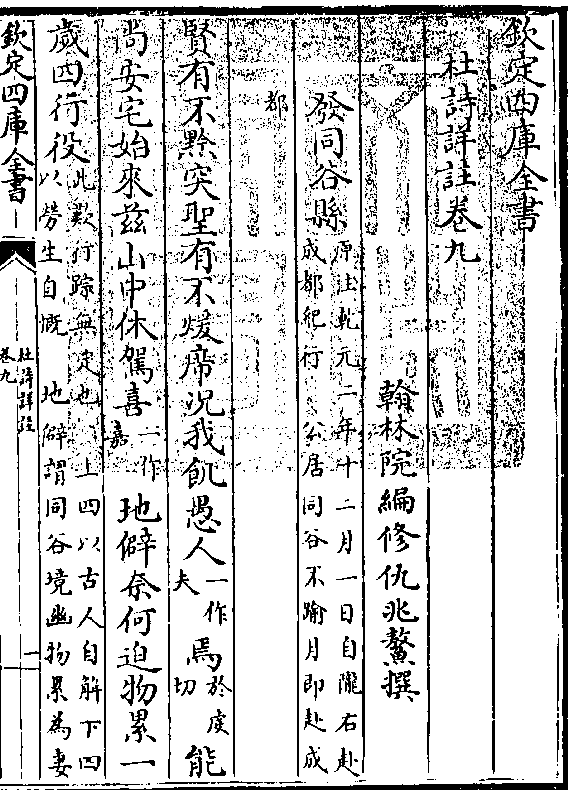 欽定四庫全書
杜詩詳註卷九
翰林院編修仇兆鰲撰
發同谷縣
原注乾元二年十二月一日自隴右赴
成都紀行 公居同谷不踰月即赴成
都
賢有不黔突聖有不煖席況我飢愚人一作夫焉於虔切能
尚安宅始來兹山中休駕喜一作嘉地僻奈何迫物累一
歲四行役
此歎行踪無定也 上四以古人自解下四
以勞生自慨 地僻謂同谷境幽物累為妻
欽定四庫全書
杜詩詳註
卷九
一